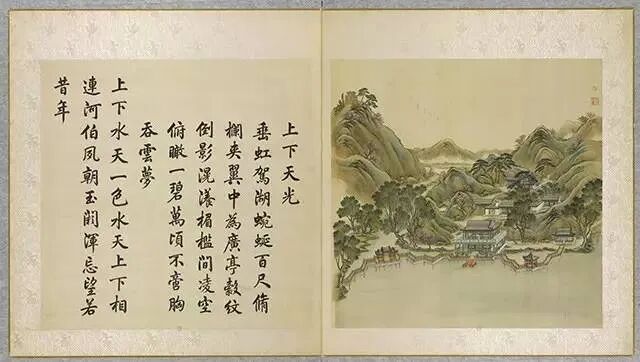 上下天光
垂虹駕湖蜿蜒百尺脩
欄夾翼中為廣亭縠紋
倒影滉漾楣檻間凌空
俯瞰一碧萬頃不啻胸
吞雲夢
上下水天一色水天上下相
連河伯夙朝玉闕渾忘望若
昔年